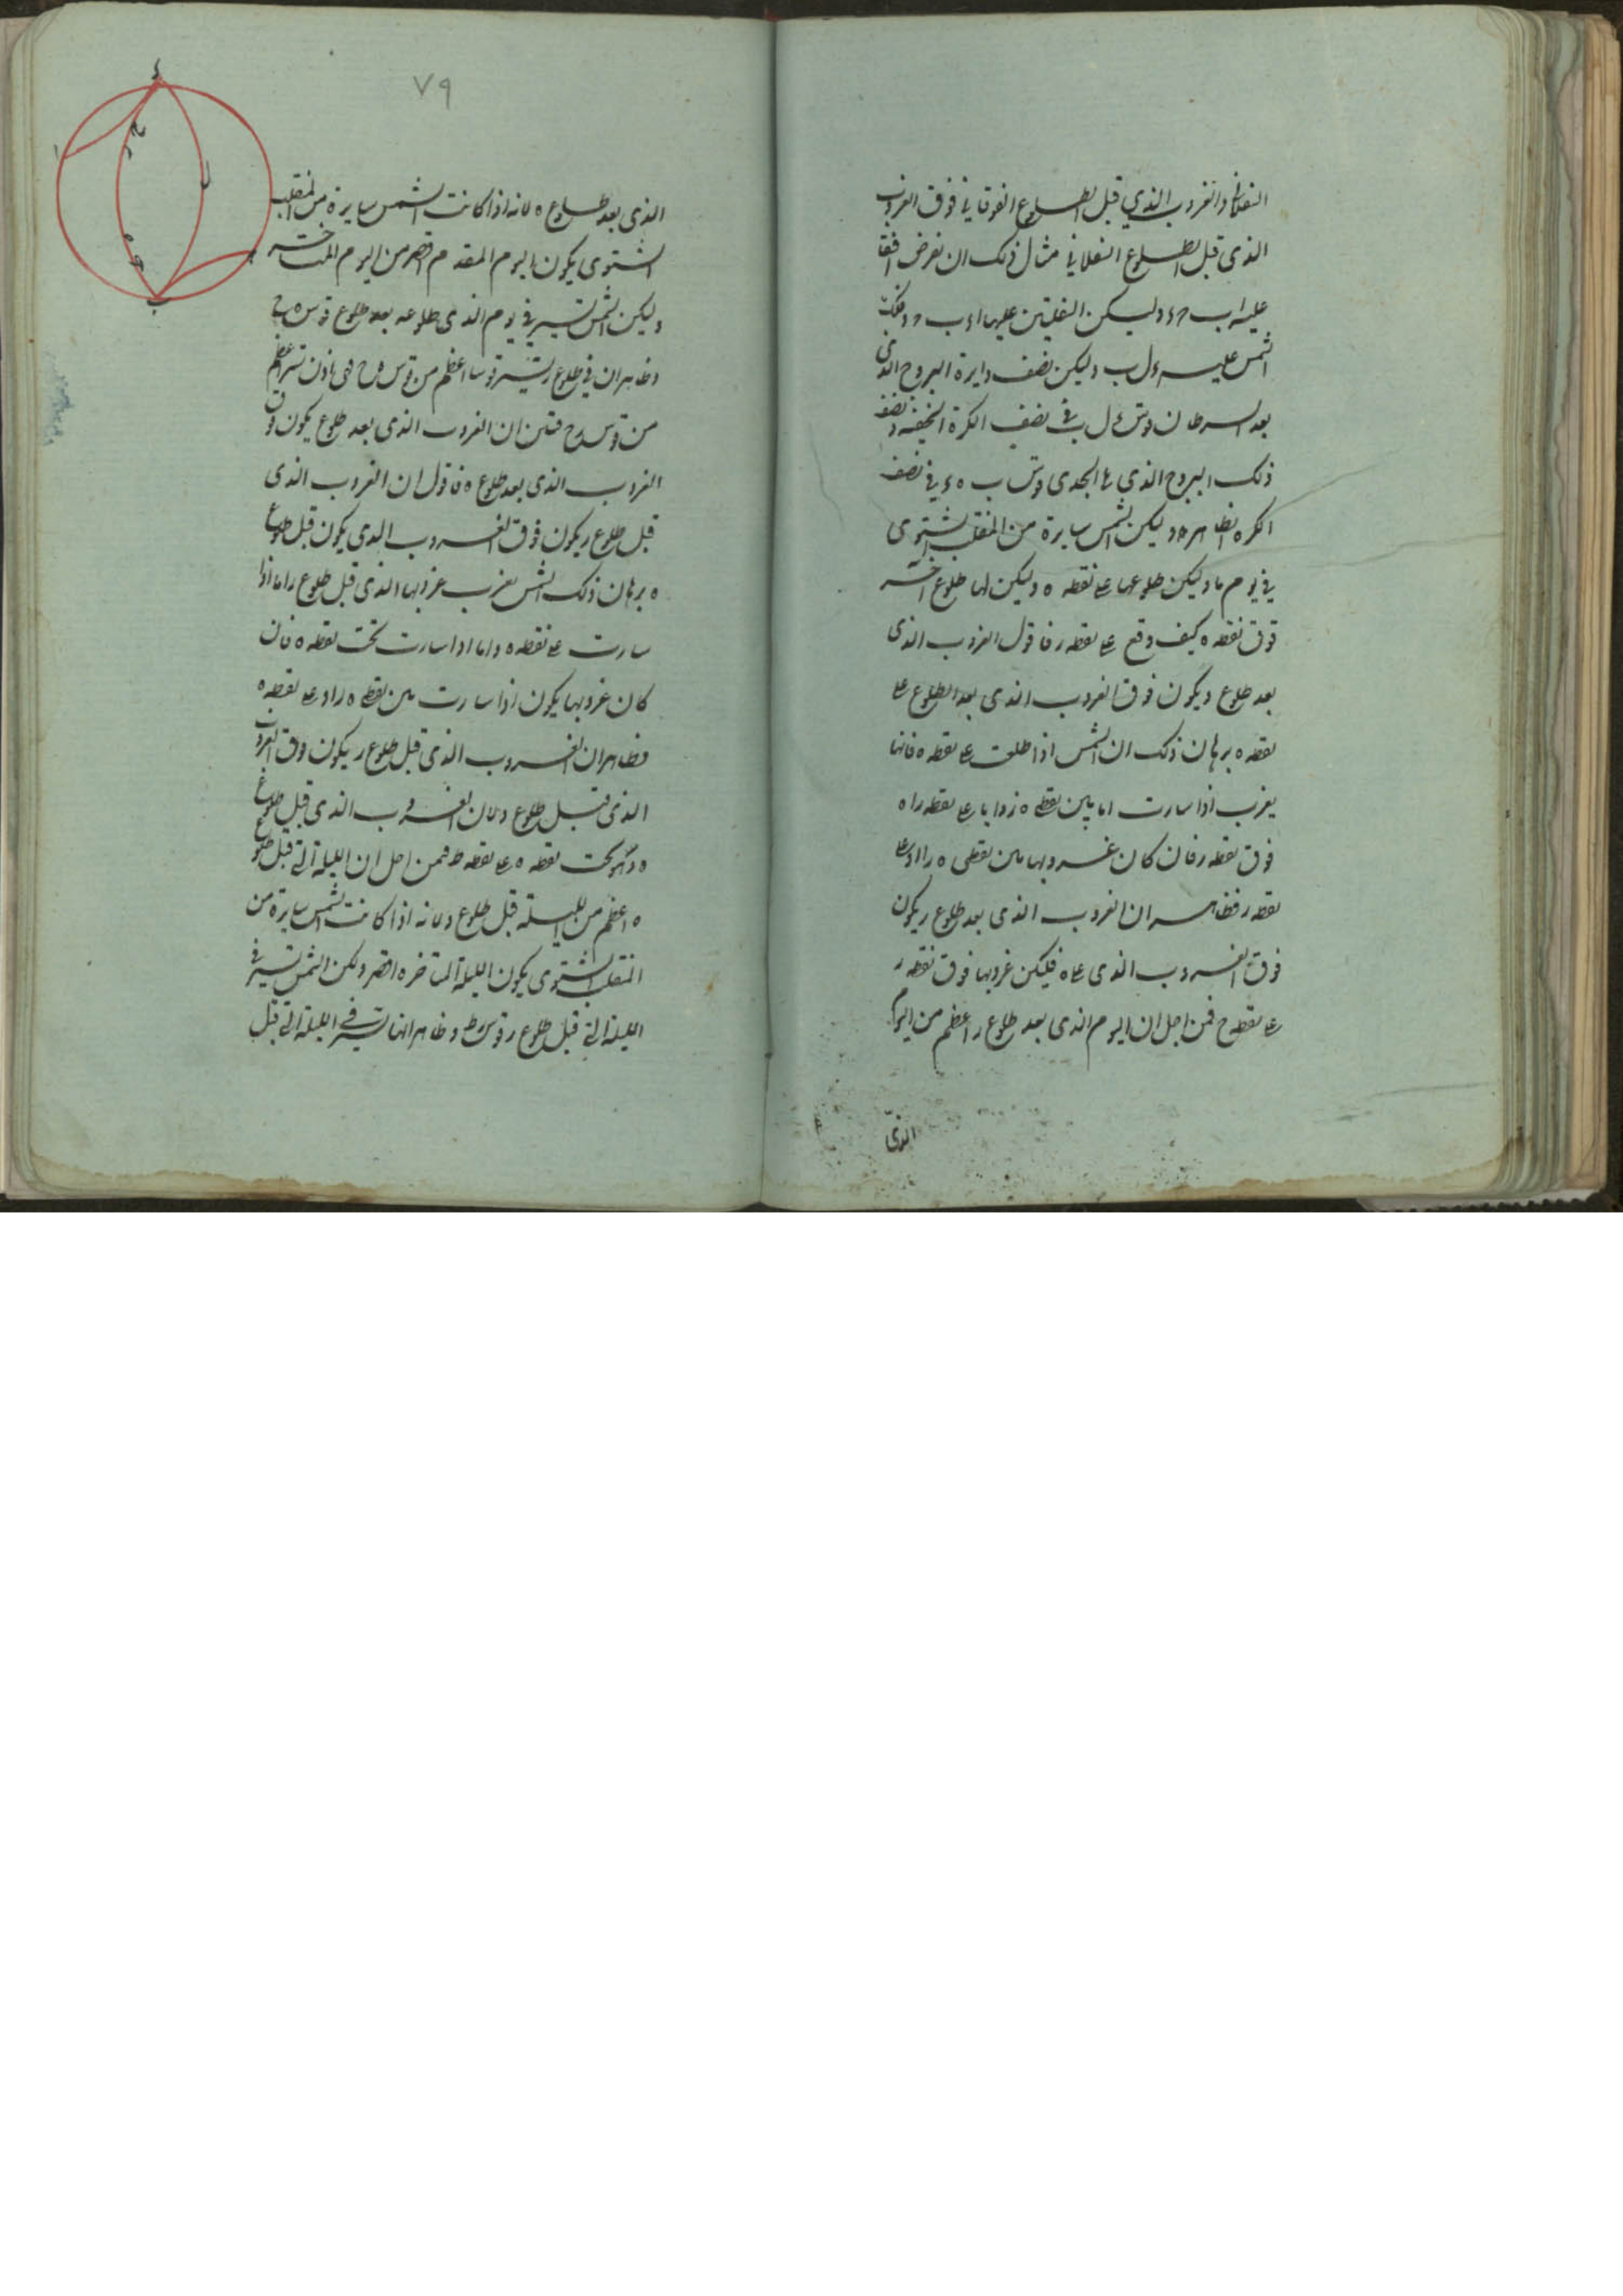 السفلانى والغروب الذي قبل الطلوع الفوقانى فوق الغروب
الذى قبل الطلوع السفلانى مثال ذلك ان نفرض افقا
عليه اب ء وليكن المنقلبين عليهما اء ب وفلك
الشمس عليه ء ل ب وليكن نصف دايرة البروج الذى
بعد السرطان قوس ء ل ب فى نصف الكرة الخفية ونصف
ذلك البروج الذي يلى الجدى قوس ب ه ء فى نصف
الكره الظاهره وليكن الشمس سايرة من المنقلب الشتوى
فى يوم ما وليكن طلوعها على نقطه ه وليكن لها طلوع اخر
فوق نقطه ه كيف وقع على نقطه ر فاقول الغروب الذى
بعد طلوع ر يكون فوق الغروب الذى بعد الطلوع على
نقطه ه برهان ذلك ان الشمس اذا طلعت على نقطه ه فانها
يغرب اذا سارت اما بين نقطى ه ر واما على نقطه ر او
فوق نقطه ر فان كان غروبها بين نقطى ه ر او على
نقطه ر فظاهر ان الغروب الذى بعد طلوع ر يكون
فوق الغروب الذى على ه فليكن غروبها فوق نقطه ر
على نقطه ح فمن اجل ان اليوم الذى بعد طلوع ر اعظم من اليوم
الذى
٧٩
الذى بعد طلوع ه لانه اذا كانت الشمس سايرة من المنقلب
الشتوى يكون اليوم المقدم اقصر من اليوم المتاخر
وليكن الشمس تسير فى يوم الذى طلوعه بعد طلوع قوس ه ح
وظاهر ان فى طلوع ر تسير قوسا اعظم من قوس ه ح فهى اذن تسير اعظم
من قوس ر ح فتبين ان الغروب الذى بعد طلوع ر يكون فوق
الغروب الذى بعد طلوع ه فاقول ان الغروب الذى
قبل طلوع ر يكون فوق الغروب الذى يكون قبل طلوع
ه برهان ذلك الشمس تغرب غروبها الذى قبل طلوع ر اما اذا
سارت على نقطه ه واما اذا سارت تحت نقطه ه فان
كان غروبها يكون اذا سارت بين نقطى ه ر او على نقطه ه
فظاهر ان الغروب الذى قبل طلوع ر يكون فوق الغروب
الذى قبل طلوع ه لان الغروب الذى قبل طلوع
ه وهو تحت نقطه ه على نقطه ط فمن اجل ان الليلة التى قبل طلوع
ه اعظم من الليلة قبل طلوع ر لانه اذا كانت الشمس سايرة من
المنقلب الشتوى يكون الليلة المتاخره اقصر ولكن الشمس تسير فى
الليلة التى قبل طلوع ر قوس ر ط وظاهر انها تسير فى الليلة التى قبل
ب
ل
ح
ر
ه
ط
ا